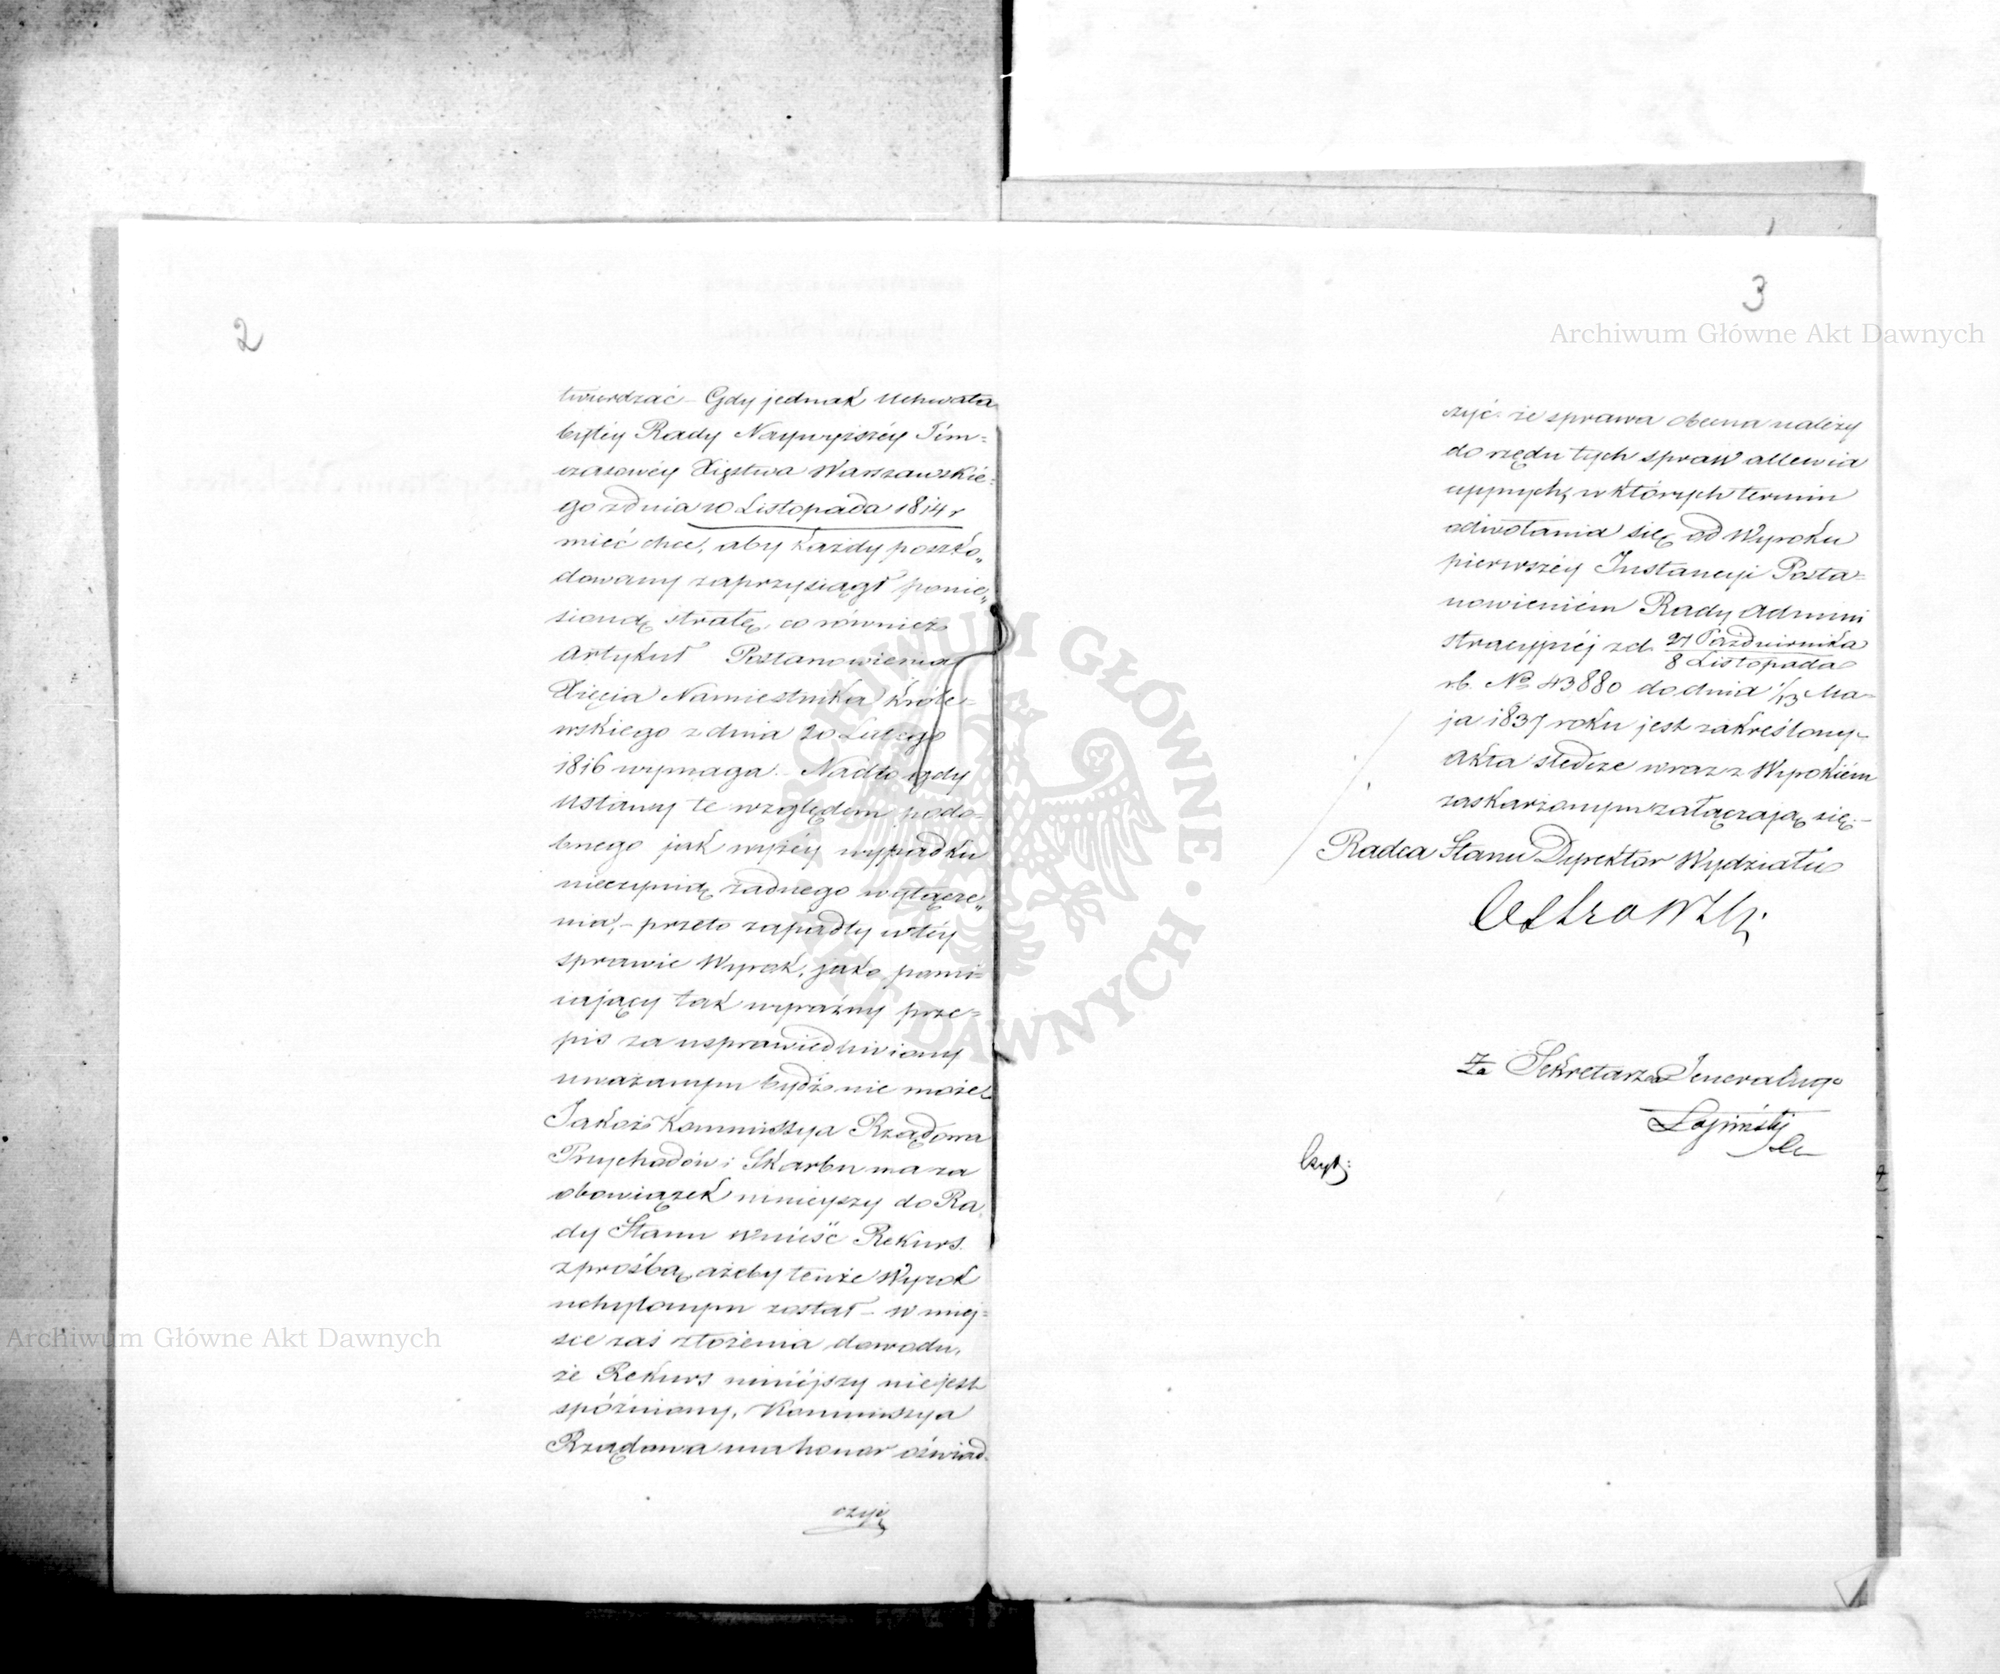 2
twierdzać – Gdy jednak Uchwała
byłéy Rady Naywyższéy Tým=
czasowéy Xięstwa Warszawskié=
go z dnia 10 Listopada 1814 r
mieć chce, aby każdy poszko„
dowany zaprzysiągł ponie„
sioną stratę, co również
Artykuł Postanowienia
Xięcia Namiestnika Króle=
wskiego z dnia 20 Lutego
1816 wymaga. – Nadto gdy
Ustawy te względem podo=
bnego jak wyżéy wypadku
nieczynią żadnego wyłącze„
nia, – przeto zapadły w téy
sprawie Wyrok, jako pomi=
iający tak wyraźny prze=
pis za usprawiedliwiony
uważanym bydź nie może
Jakoż Kommissya Rządowa
Przychodów i Skarbu ma za
obowiązek ninieyszy do Ra
dy Stanu wnieść Rekurs.
z prośbą, ażeby tenże Wyrok
uchylonym został – w miej=
sce zaś złożenia dowodu,
że Rekurs niniéjszy nie jest
spóźniony, Kommissya
Rządowa ma honor oświad.
czyć
3
czyć że sprawa obecna należy
do rzędu tych spraw allewia
cyjnych, w których termin
odwołania się od Wyroku
pierwszéy Instancyi Posta=
nowieniém Rady Admini
stracyjnéj z d. 27 Października
8 Listopada
r.b. No 43880 do dnia 1/13 Ma=
ja 1837 roku jest zakreślony.
Akta śledcze wraz z Wyrokiém
zaskarżonym załączają się. –
Radca Stanu Dyrektor Wydziału
Za Sekretarza Jeneralnego
Archiwum Główne Akt Dawnych
Archiwum Główne Akt Dawnych
ARCHIWUM GŁÓWNE AKT DAWNYCH